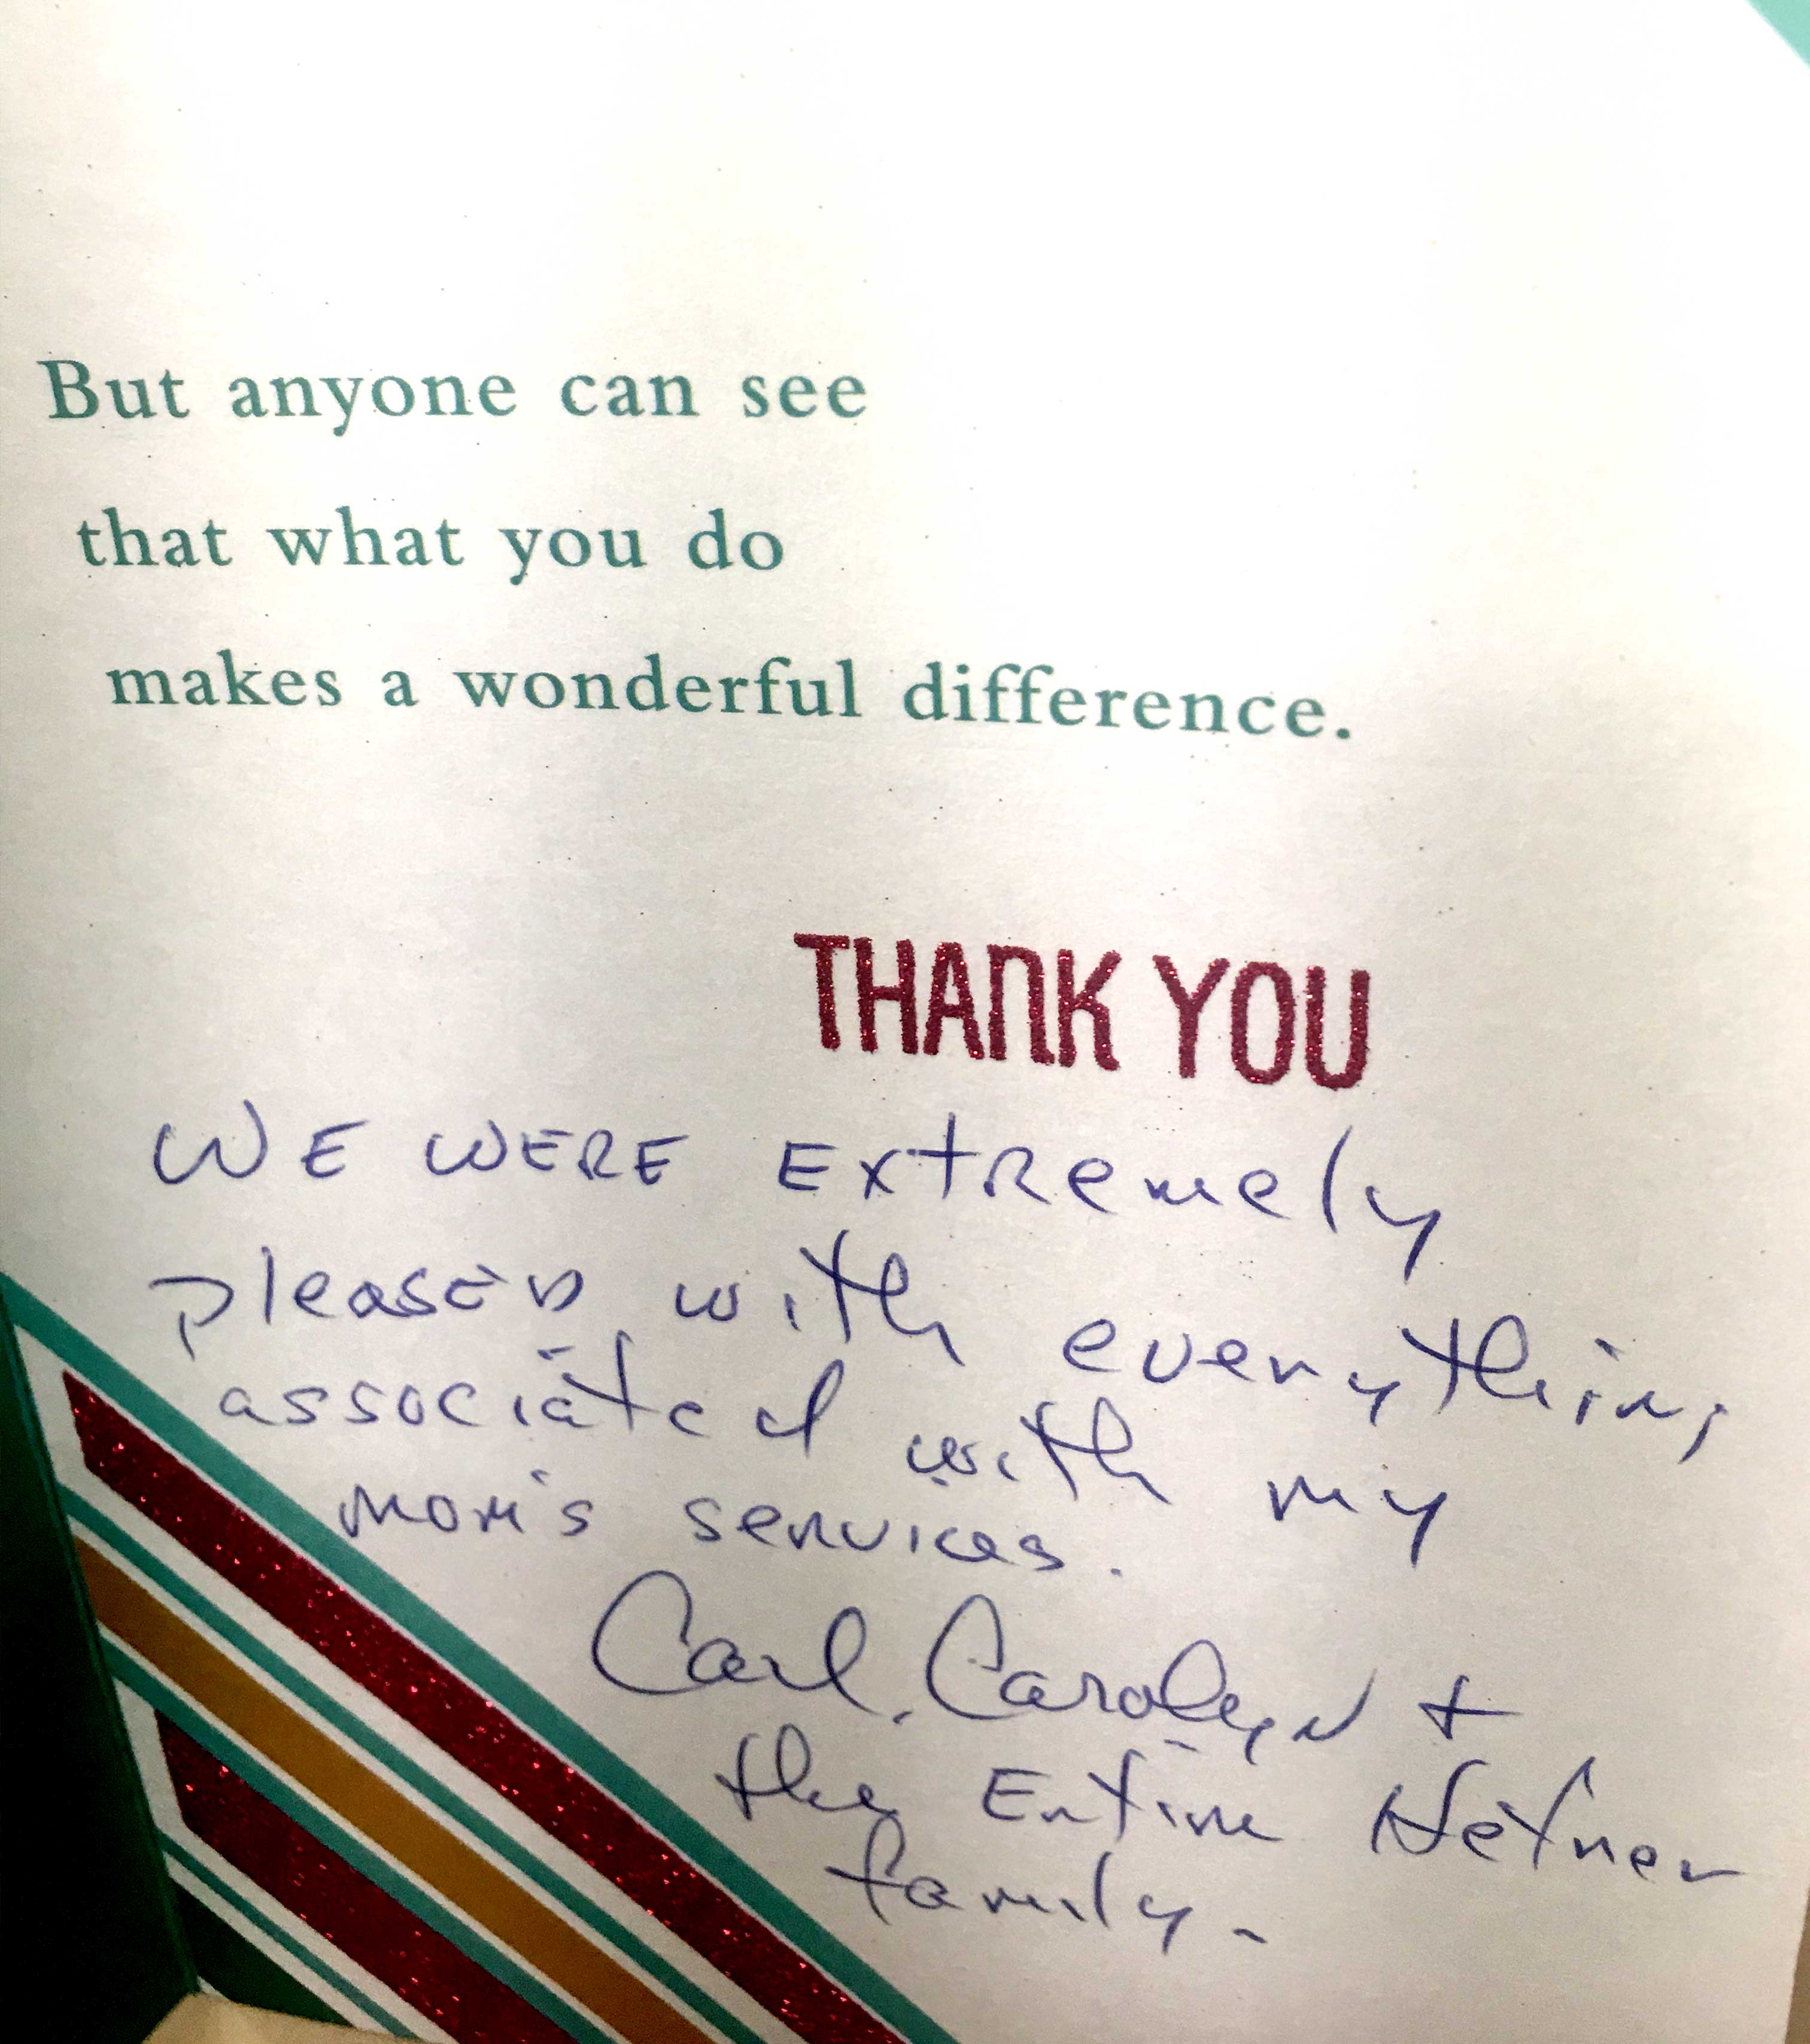 But anyone can see
that what you do
makes a wonderful difference.
THANK YOU
WE WERE Extremely
pleased with everything
associated with my
mom's services.
Carl, Carolyn +
the Entire
family.